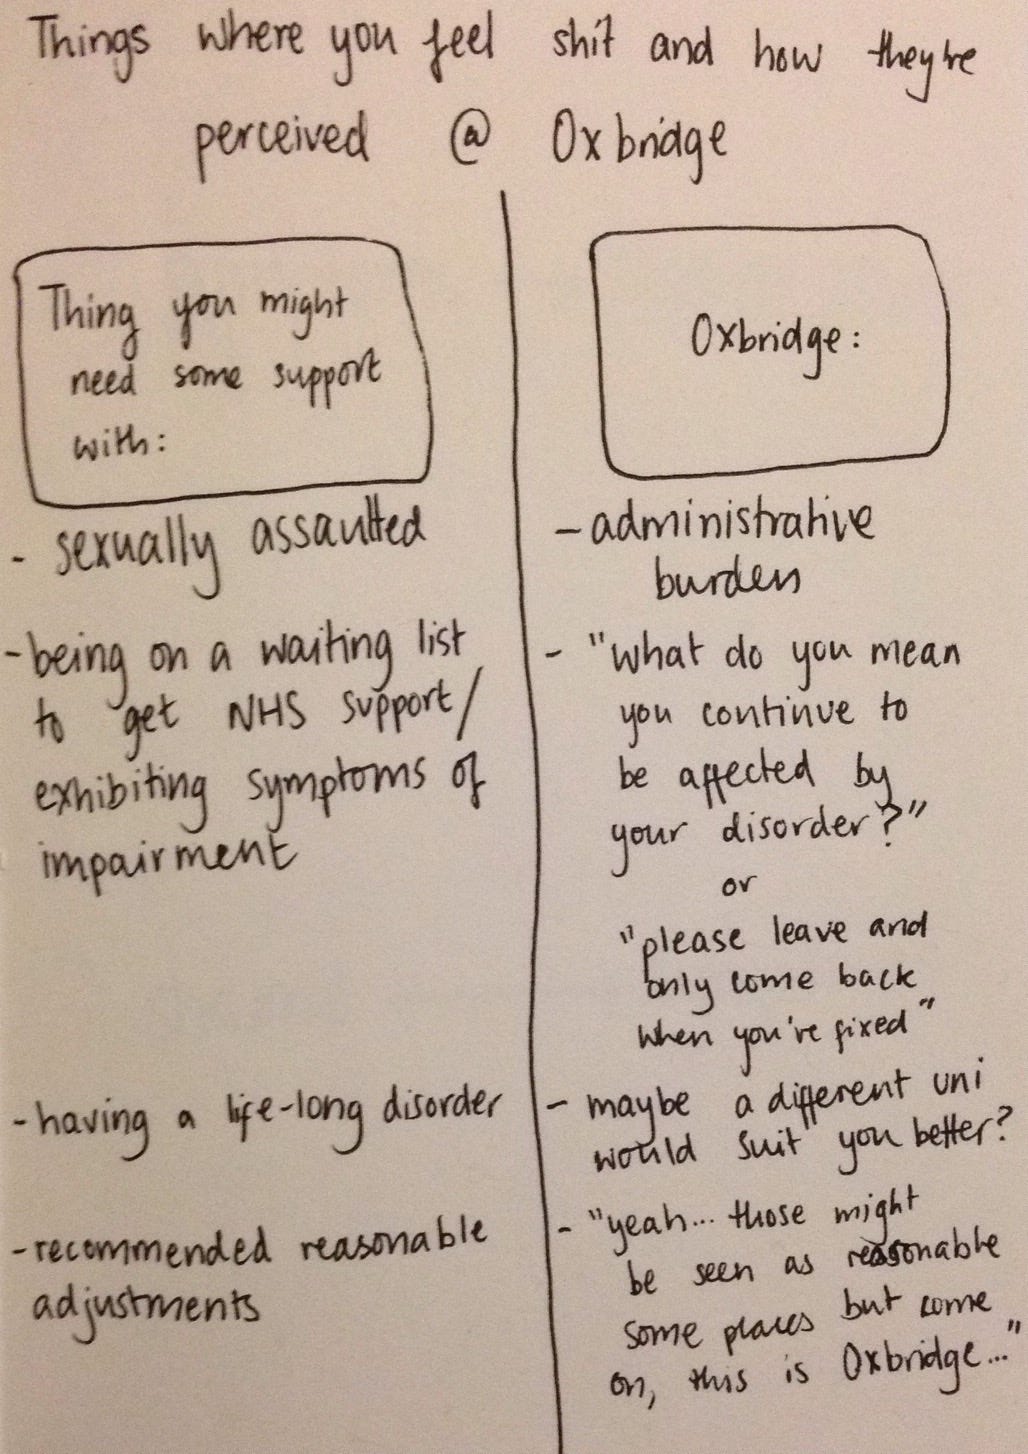 Things where you feel shit and how they're
perceived @ Oxbridge
Thing you might
need some support
with:
- sexually assaulted
- being on a waiting list
to get NHS support/
exhibiting symptoms of
impairment
- having a life-long disorder
- recommended reasonable
adjustments
Oxbridge:
- administrative
burden
- "What do you mean
you continue to
be affected by
your disorder?"
or
"please leave and
only come back
when you're fixed"
- maybe a different uni
would suit you better?
- "yeah... those might
be seen as reasonable
some places but come
on, this is Oxbridge..."